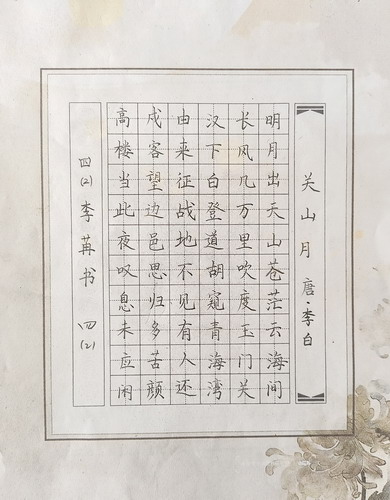 关山月 唐·李白
明月出天山苍茫云海间
长风几万里吹度玉门关
汉下白登道胡窥青海湾
由来征战地不见有人还
戍客望边邑思归多苦颜
高楼当此夜叹息未应闲
四(2)李苒书 四(2)